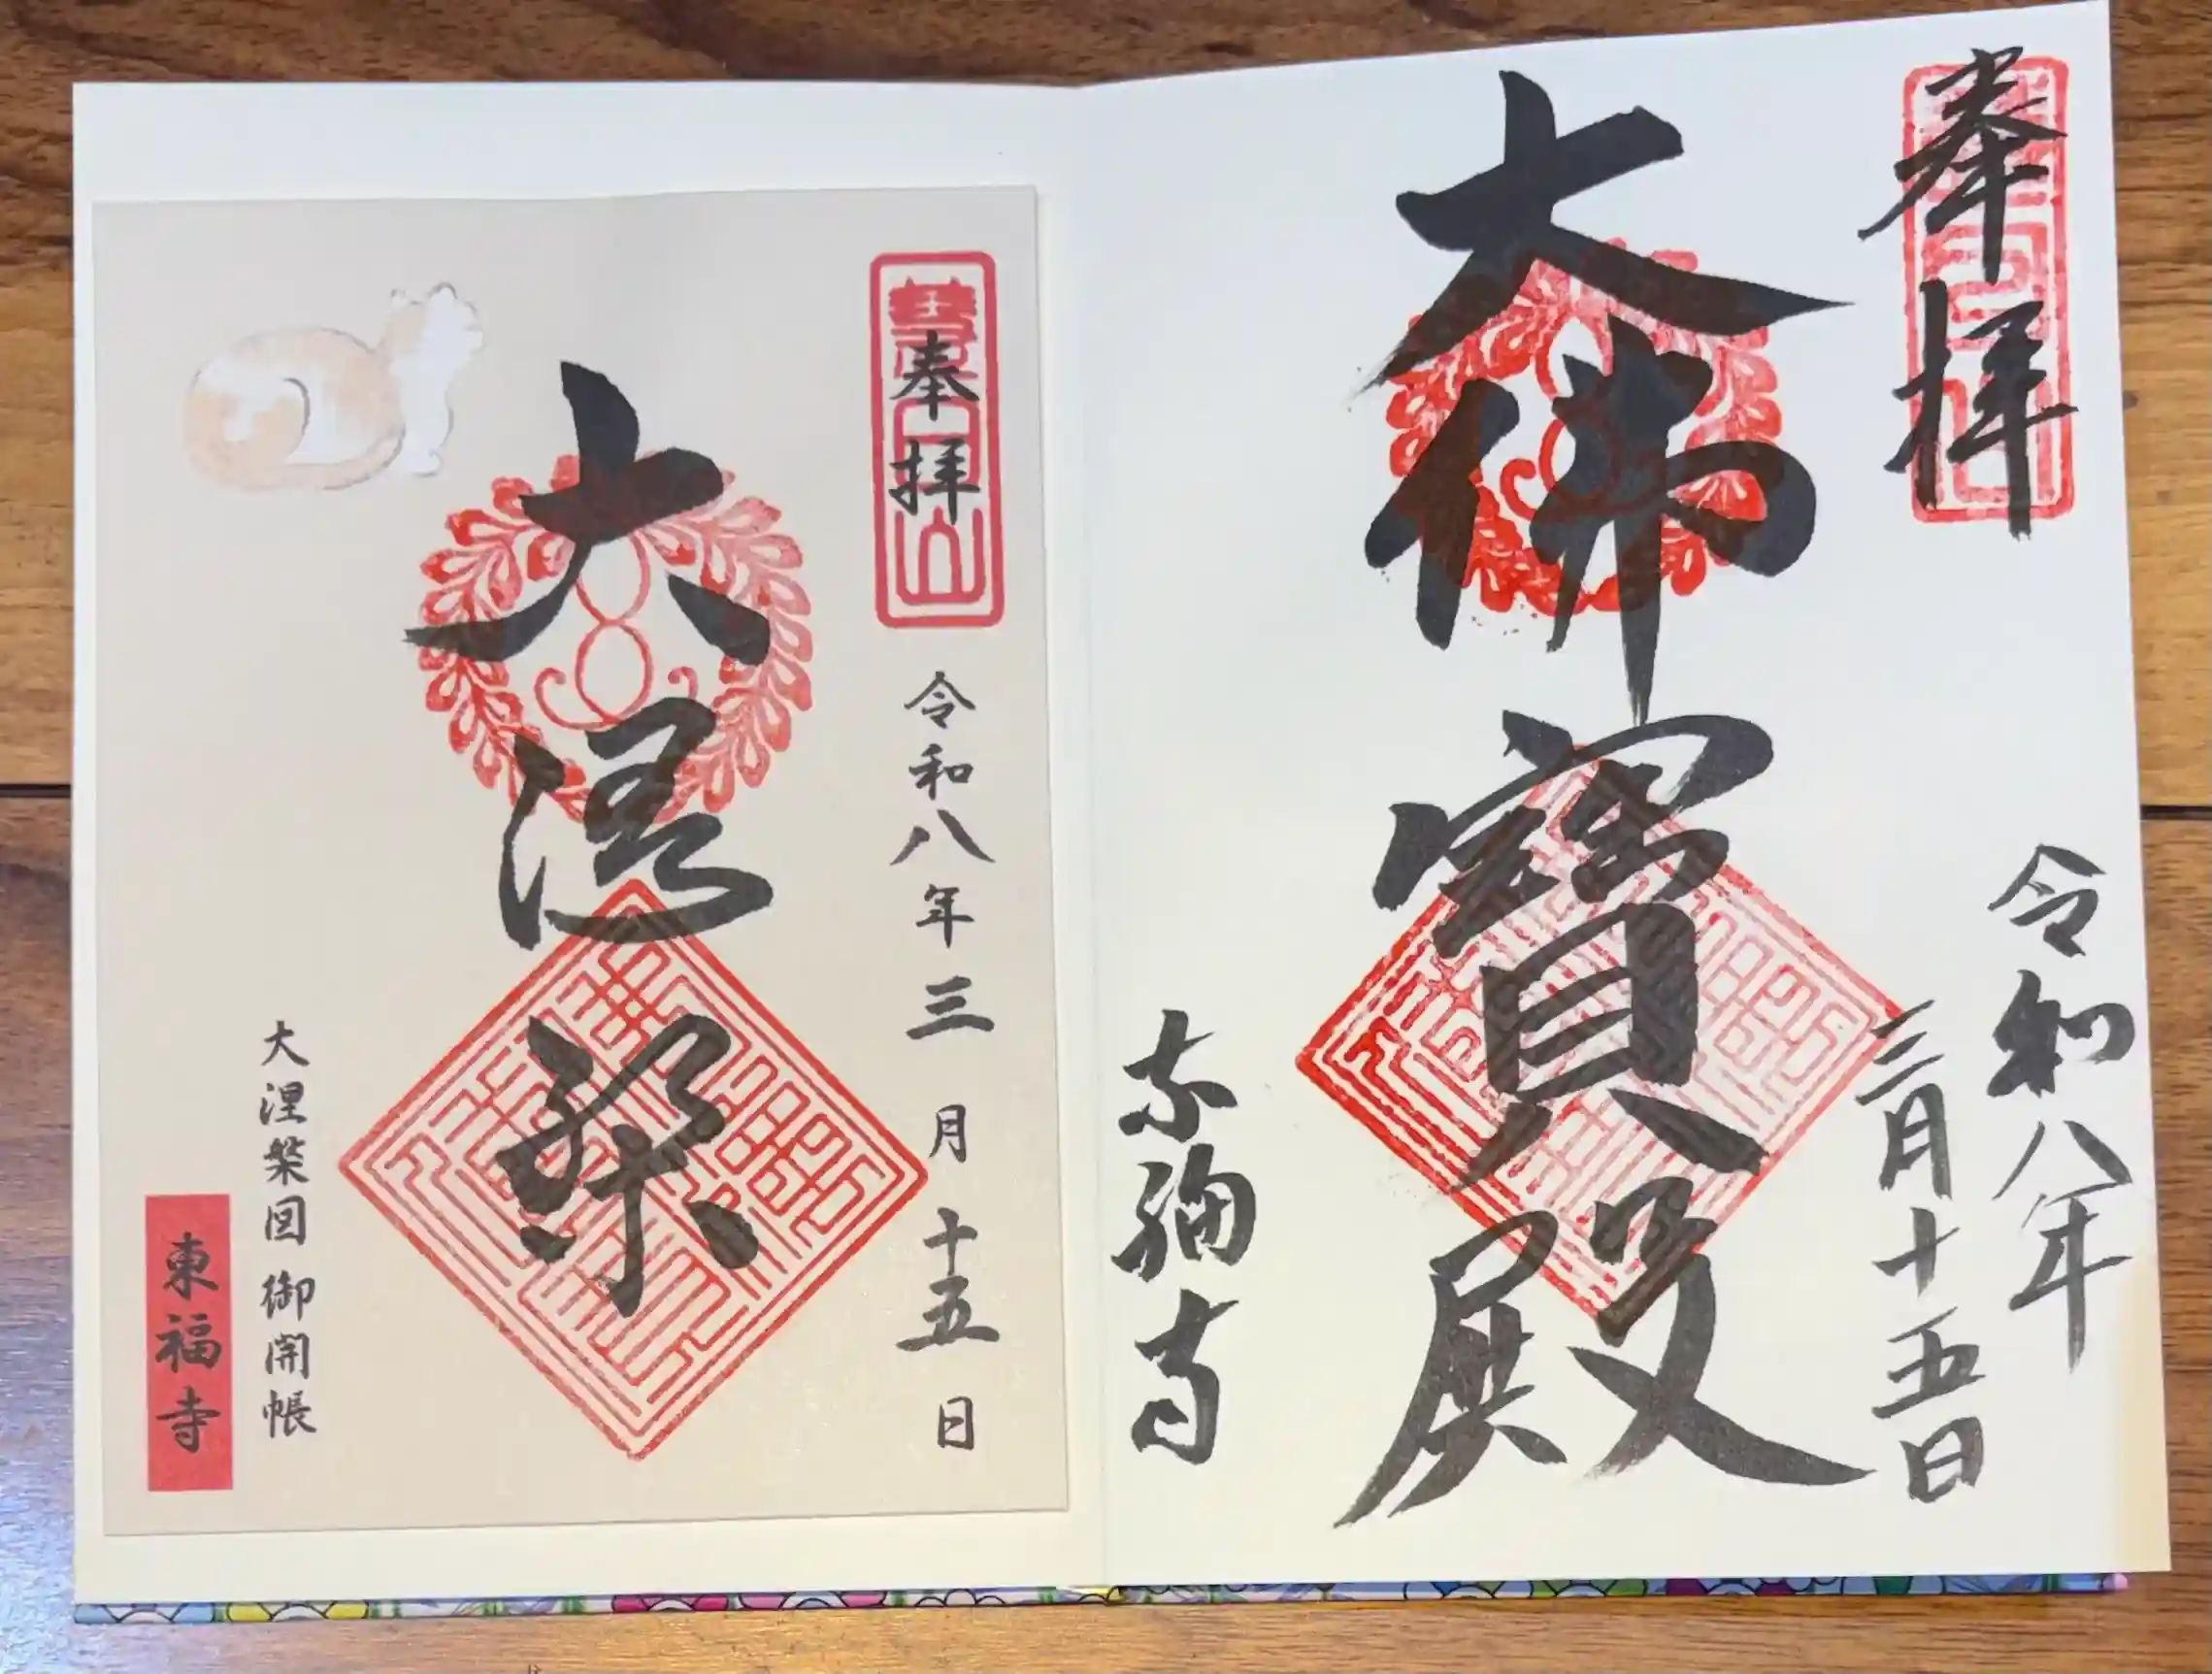 奉拝
令和八年
三月十五日
大佛寳殿
東福寺
奉拝
令和八年三月十五日
大涅槃
大涅槃図 御開帳
東福寺